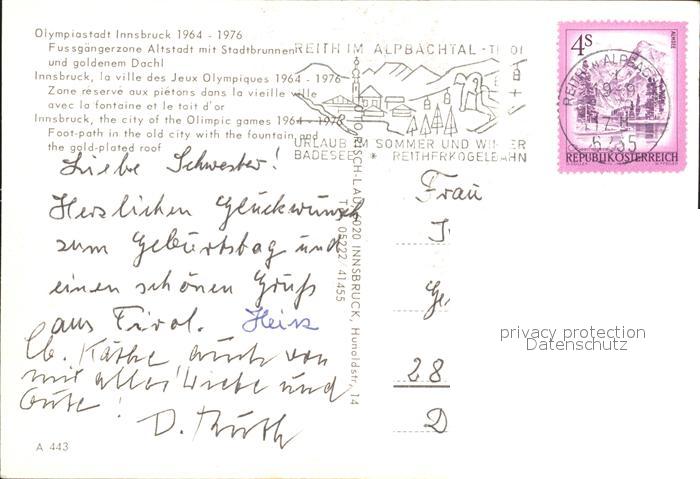 Olympiastadt Innsbruck 1964 - 1976
Fussgängerzone Altstadt mit Stadtbrunnen
und goldenem Dachl
Innsbruck, la ville des Jeux Olympiques 1964 - 1976
Zone réservé aux piétons dans la vieille ville
avec la fontaine et le tait d'or
Innsbruck, the city of the Olimpic games 1964 - 1976
Foot-path in the old city with the fountain and
the gold-plated roof
REITH IM ALPBACHTAL - TIROL
URLAUB IM SOMMER UND WINTER
BADESEE * REITHERKOGELBAHN
4S
ALMSEE
REPUBLIK ÖSTERREICH
REITH IM ALPBACHTAL
6235
Liebe Schwester!
Herzlichen Glückwunsch
zum Geburtstag und
einen schönen Gruß
aus Tirol. Heinz
Lb. Käthe auch von
mir alles Liebe und
Gute!
D. Ruth
A 443
6020 INNSBRUCK, Hunoldstr. 14
Tel. 05222/41455
Frau
28
D
privacy protection
Datenschutz